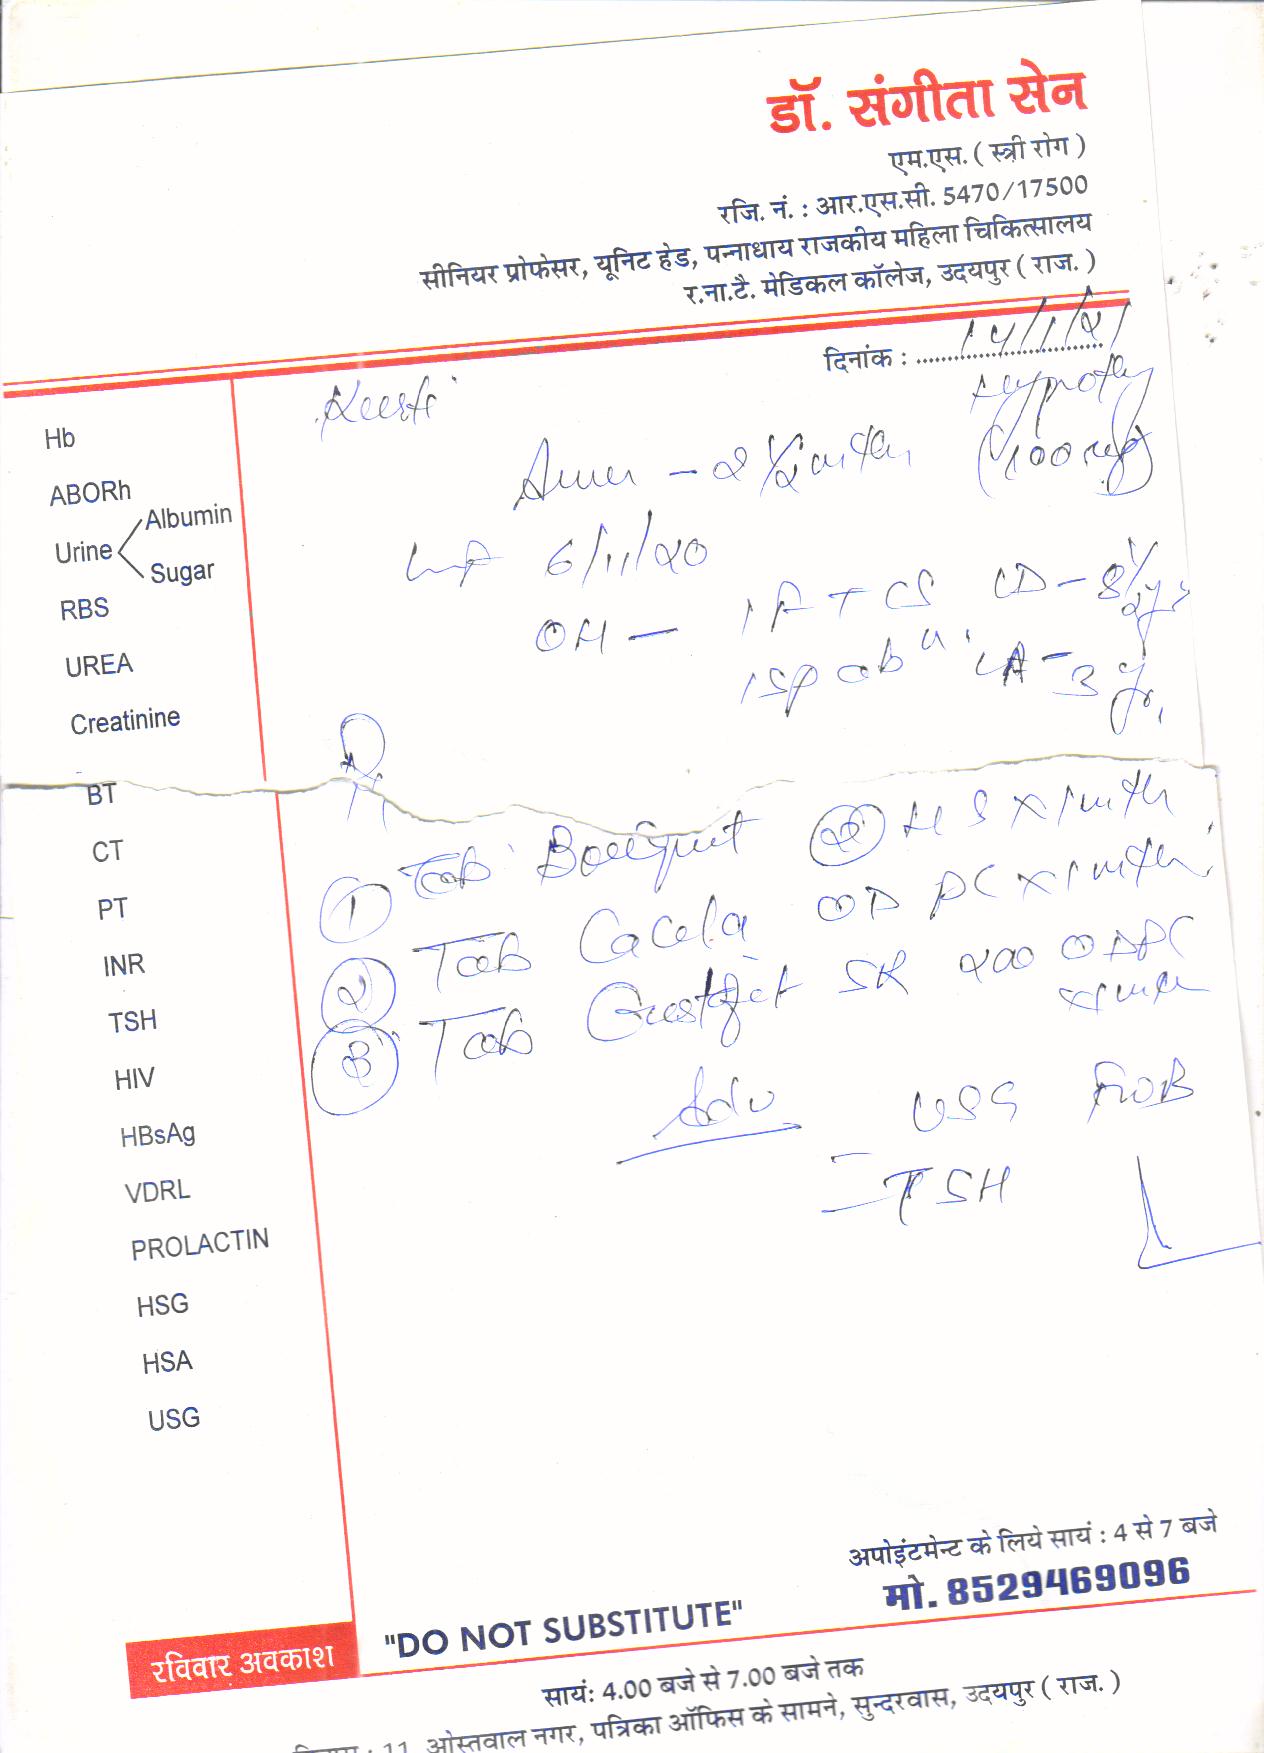 डॉ. संगीता सेन
एम.एस. ( स्त्री रोग )
रजि. नं. : आर.एस.सी. 5470/17500
सीनियर प्रोफेसर, यूनिट हेड, पन्नाधाय राजकीय महिला चिकित्सालय
र.ना.टै. मेडिकल कॉलेज, उदयपुर ( राज. )
दिनांक :
Hb
ABORh
Urine Albumin
Sugar
RBS
UREA
Creatinine
BT
CT
PT
INR
TSH
HIV
HBsAg
VDRL
PROLACTIN
HSG
HSA
USG
Amen - 2 1/2 mth
LMP 6/11/20
OH - 1 FTCS LD - 8 1/2 yr
1 sp ab LA - 3 yr
① Tab HS x 1 mth
② Tab OD PC x 1 mth
③ Tab SR 200 OD PC
x 1 mth
Adv USG
- TSH
अपोइंटमेन्ट के लिये सायं : 4 से 7 बजे
मो. 8529469096
"DO NOT SUBSTITUTE"
रविवार अवकाश
सायं: 4.00 बजे से 7.00 बजे तक
: 11, ओस्तवाल नगर, पत्रिका ऑफिस के सामने, सुन्दरवास, उदयपुर ( राज. )